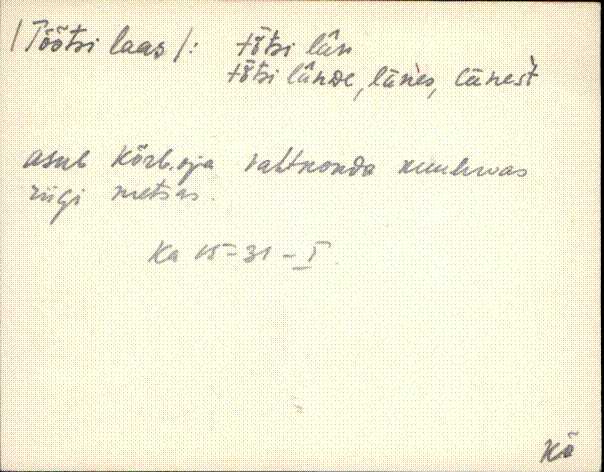 /Töötsi laas/: tö̂tsi lân
tö̂tsi lânde, länes, länest
asub Kõrb.oja vahtkonda
riigi metsas.
Ka 15-31-I
Kõ